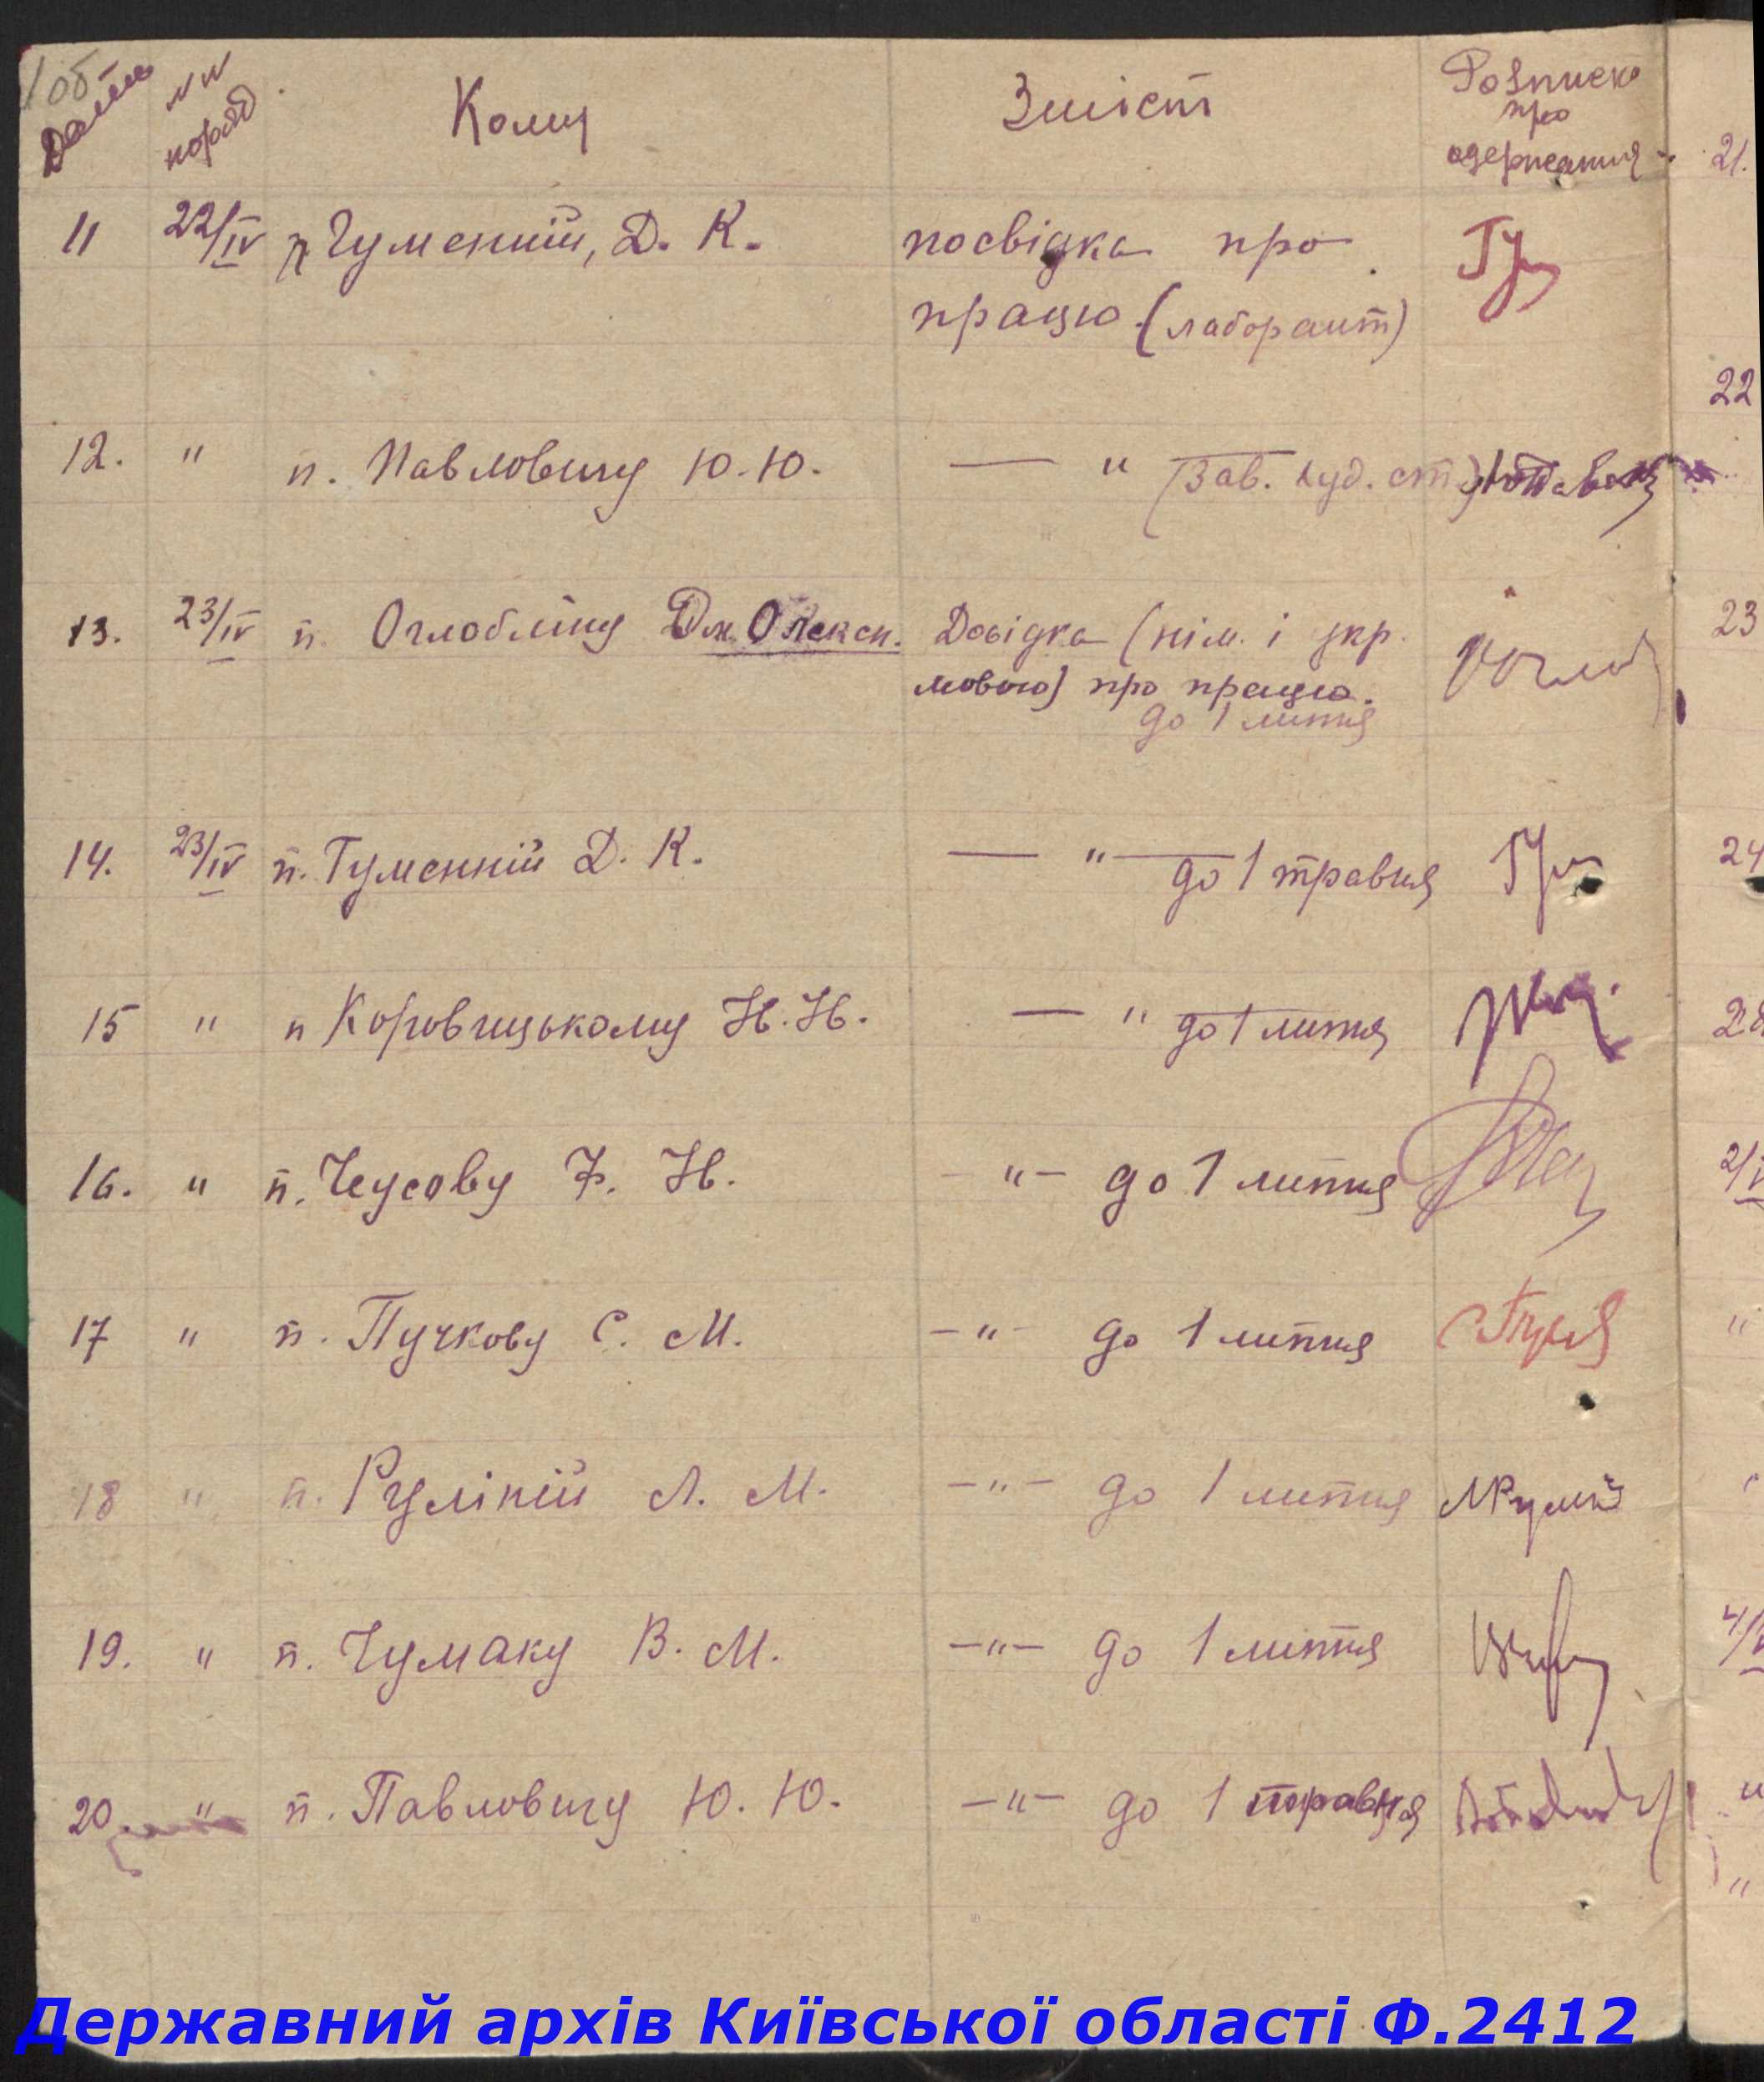 1об
Дата
NN
поряд
Кому
Зміст
Розписка
про
одержання
11 22/IV п Гуменній, Д. К. посвідка про
працю (лаборант)
12. " п. Павловичу Ю.Ю. — " — (Зав. худ. ст.)
13. 23/IV п. Оглобліну Дм. Олексн. Довідка (нім. і укр.
мовою) про працю.
до 1 липня
14. 23/IV п. Гуменній Д. К. — " — до 1 травня
15 " п Коровицькому Н.Н. — " — до 1 липня
16. " п. Чеусову Ф. Н. — " — до 1 липня
17 " п. Пучкову С. М. — " — до 1 липня
18 " п. Руліній Л. М. — " — до 1 липня
19. " п. Чумаку В. М. — " — до 1 липня
20. " п. Павловичу Ю. Ю. — " — до 1 травня
21.
22
23
24
Державний архів Київської області Ф.2412